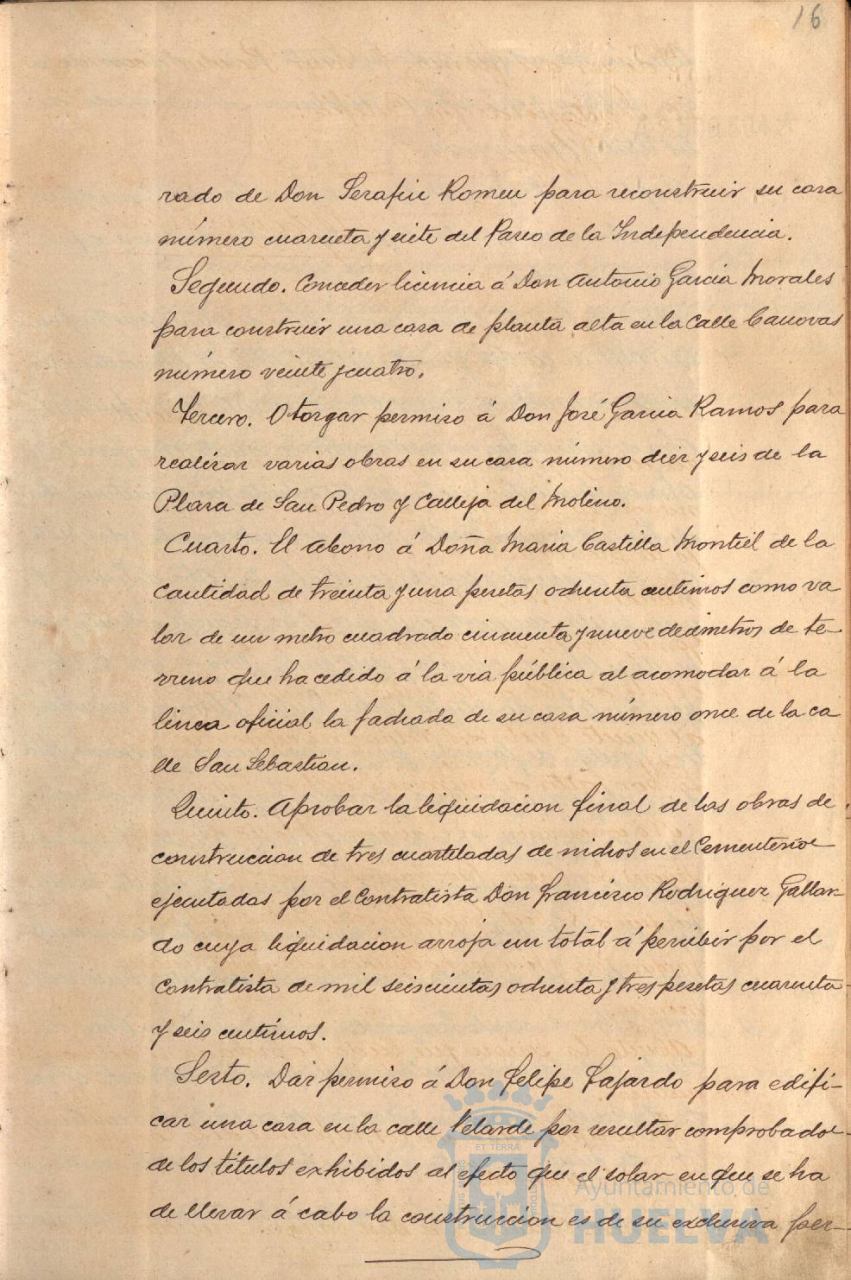 16
rado de Don Serafin Romeu para reconstruir su casa
número cuarenta y siete del Paseo de la Independencia.
Segundo. Conceder licencia á Don Antonio Garcia Morales
para construir una casa de planta alta en la Calle Canovas
número veinte y cuatro.
Tercero. Otorgar permiso á Don José Garcia Ramos para
realizar varias obras en su casa número diez y seis de la
Plaza de San Pedro y Calleja del Molino.
Cuarto. El abono á Doña Maria Castilla Montiel de la
cantidad de treinta y una pesetas ochenta centimos como va
lor de un metro cuadrado cincuenta y nueve decimetros de te-
rreno que ha cedido á la via pública al acomodar á la
linea oficial la fachada de su casa número once de la ca
lle San Sebastian.
Quinto. Aprobar la liquidacion final de las obras de
construccion de tres cuarteladas de nichos en el Cementerio
ejecutadas por el Contratista Don Francisco Rodriguez Gallar-
do cuya liquidacion arroja un total á percibir por el
Contratista de mil seiscientas ochenta y tres pesetas cuarenta
y seis centimos.
Sesto. Dar permiso á Don Felipe Fajardo para edifi-
car una casa en la calle Velarde por resultar comprobado
de los titulos exhibidos al efecto que el solar en que se ha
de llevar á cabo la construccion es de su exclusiva per-
ET TERRA
Ayuntamiento de
HUELVA